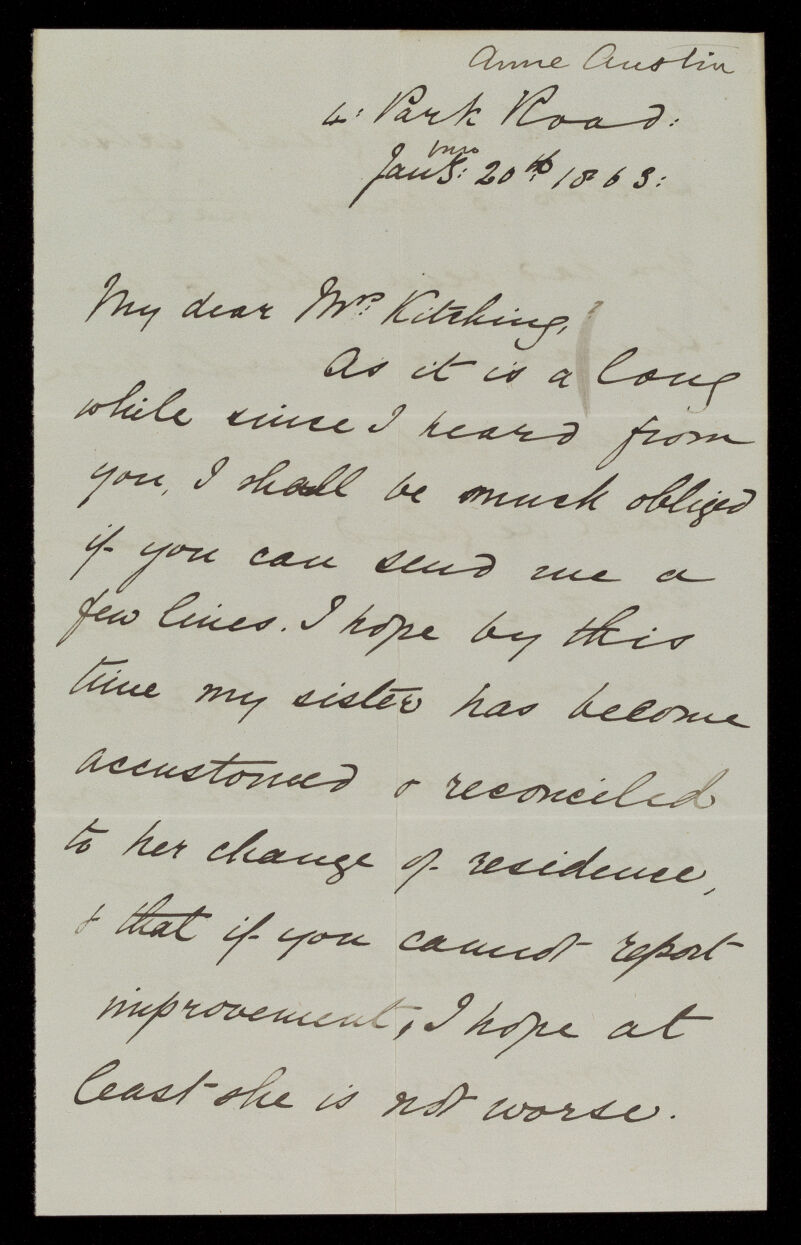 Anne Austin
4: Park Road:
Jany: 20th 1863:
My dear Mrs. Kitching,
As it is a long
while since I heard from
you, I shall be much obliged
if you can send me a
few lines. I hope by this
time my sister has become
accustomed & reconciled
to her change of residence,
& that if you cannot report
improvement, I hope at
least she is not worse.